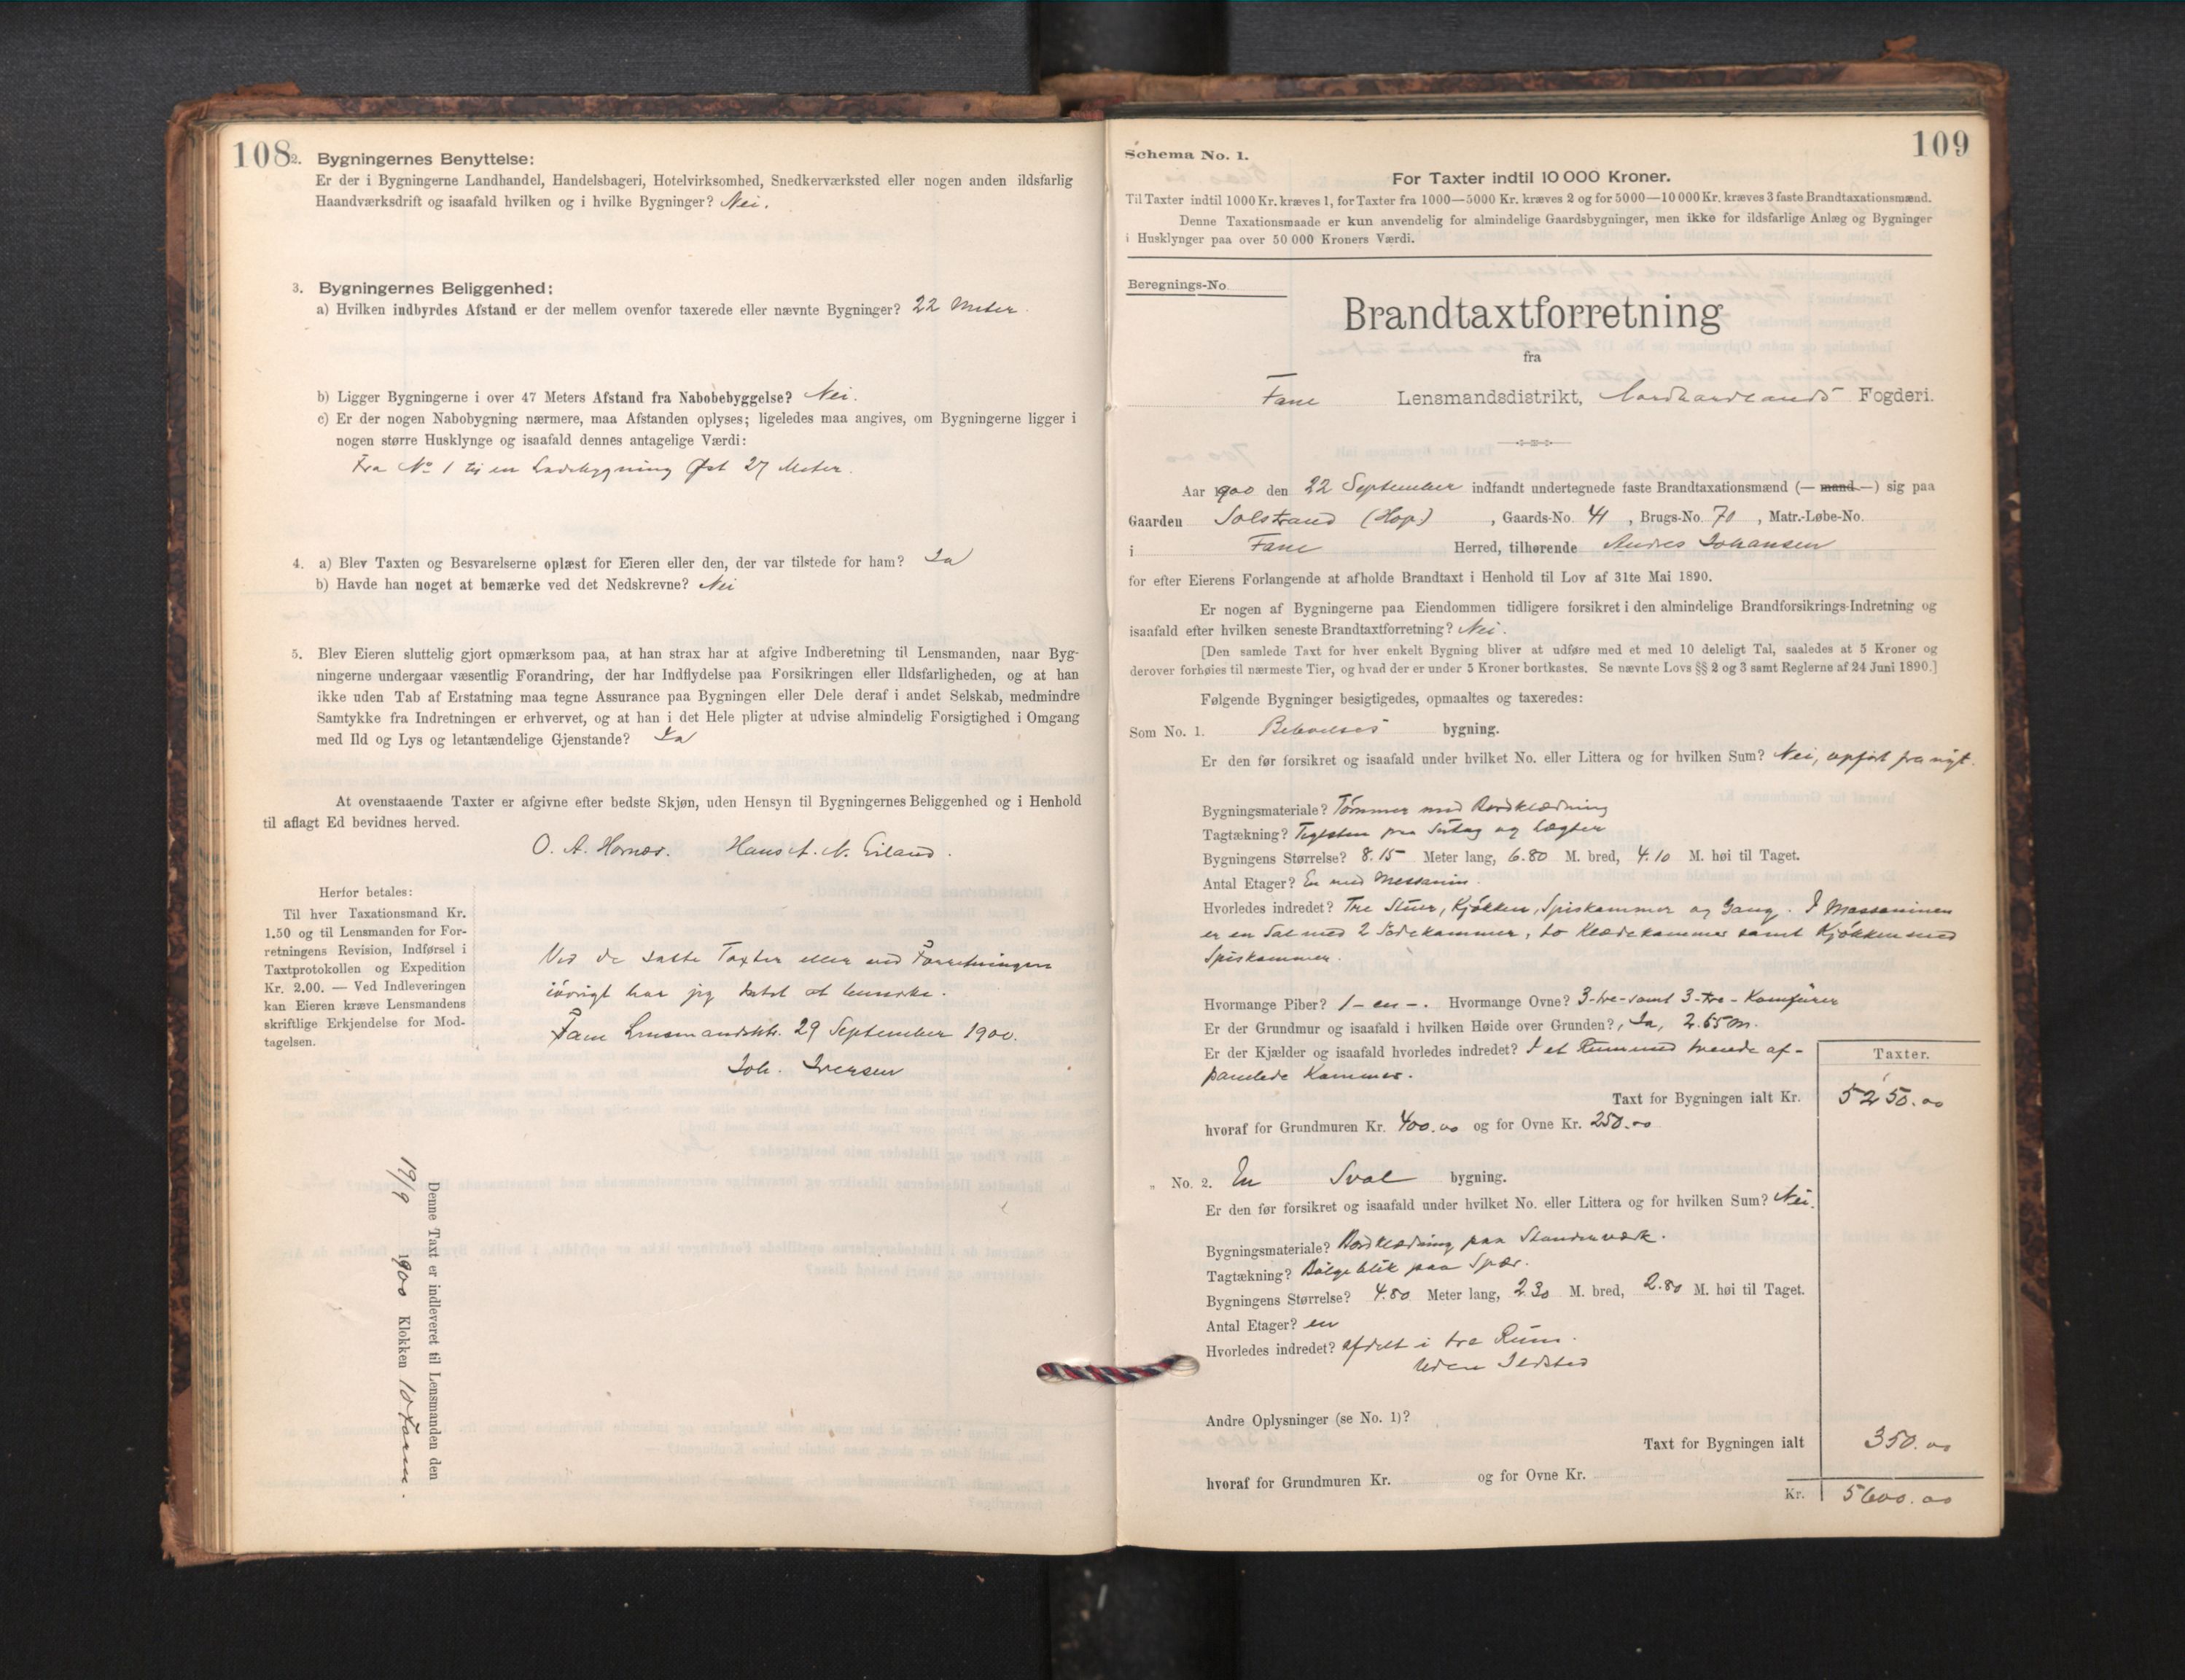 108
2. Bygningernes Benyttelse:
Er der i Bygningerne Landhandel, Handelsbageri, Hotelvirksomhed, Snedkerværksted eller nogen anden ildsfarlig
Haandværksdrift og isaafald hvilken og i hvilke Bygninger? Nei.
3. Bygningernes Beliggenhed:
a) Hvilken indbyrdes Afstand er der mellem ovenfor taxerede eller nævnte Bygninger? 22 Meter.
b) Ligger Bygningerne i over 47 Meters Afstand fra Nabobebyggelse? Nei.
c) Er der nogen Nabobygning nærmere, maa Afstanden oplyses; ligeledes maa angives, om Bygningerne ligger i
nogen større Husklynge og isaafald dennes antagelige Værdi:
Fra No 1 til en Ladebygning Øst 27 Meter.
4. a) Blev Taxten og Besvarelserne oplæst for Eieren eller den, der var tilstede for ham? Ja
b) Havde han noget at bemærke ved det Nedskrevne? Nei
5. Blev Eieren sluttelig gjort opmærksom paa, at han strax har at afgive Indberetning til Lensmanden, naar Byg-
ningerne undergaar væsentlig Forandring, der har Indflydelse paa Forsikringen eller Ildsfarligheden, og at han
ikke uden Tab af Erstatning maa tegne Assurance paa Bygningen eller Dele deraf i andet Selskab, medmindre
Samtykke fra Indretningen er erhvervet, og at han i det Hele pligter at udvise almindelig Forsigtighed i Omgang
med Ild og Lys og letantændelige Gjenstande? Ja
At ovenstaaende Taxter er afgivne efter bedste Skjøn, uden Hensyn til Bygningernes Beliggenhed og i Henhold
til aflagt Ed bevidnes herved.
O. A. Hans A. N.
Herfor betales:
Til hver Taxationsmand Kr.
1.50 og til Lensmanden for For-
retningens Revision, Indførsel i
Taxtprotokollen og Expedition
Kr. 2.00. — Ved Indleveringen
kan Eieren kræve Lensmandens
skriftlige Erkjendelse for Mod-
tagelsen.
Ved de satte Taxter eller ved Forretningen
iøvrigt har jeg intet at bemærke.
Fane Lensmandsktr. 29 September 1900.
Joh. Iversen
Denne Taxt er indleveret til Lensmanden den
19/9 1900 Klokken 10 Form.
109
Schema No. 1.
For Taxter indtil 10 000 Kroner.
Til Taxter indtil 1000 Kr. kræves 1, for Taxter fra 1000—5000 Kr. kræves 2 og for 5000—10 000 Kr. kræves 3 faste Brandtaxationsmænd.
Denne Taxationsmaade er kun anvendelig for almindelige Gaardsbygninger, men ikke for ildsfarlige Anlæg og Bygninger
i Husklynger paa over 50 000 Kroners Værdi.
Beregnings-No
Brandtaxtforretning
fra
Fane Lensmandsdistrikt, Nordhordlands Fogderi.
Aar 1900 den 22 September indfandt undertegnede faste Brandtaxationsmænd (— mand —) sig paa
Gaarden Solstrand (Hop), Gaards-No. 41, Brugs-No. 70, Matr.-Løbe-No.
i Fane Herred, tilhørende Andres Johansen
for efter Eierens Forlangende at afholde Brandtaxt i Henhold til Lov af 31te Mai 1890.
Er nogen af Bygningerne paa Eiendommen tidligere forsikret i den almindelige Brandforsikrings-Indretning og
isaafald efter hvilken seneste Brandtaxtforretning? Nei.
[Den samlede Taxt for hver enkelt Bygning bliver at udføre med et med 10 deleligt Tal, saaledes at 5 Kroner og
derover forhøies til nærmeste Tier, og hvad der er under 5 Kroner bortkastes. Se nævnte Lovs §§ 2 og 3 samt Reglerne af 24 Juni 1890.]
Følgende Bygninger besigtigedes, opmaaltes og taxeredes:
Som No. 1. Beboelses bygning.
Er den før forsikret og isaafald under hvilket No. eller Littera og for hvilken Sum? Nei, opført fra nyt.
Bygningsmateriale? Tømmer med Bordklædning
Tagtækning? Teglsten paa Sutag og Lægter
Bygningens Størrelse? 8.15 Meter lang, 6.80 M. bred, 4.10 M. høi til Taget.
Antal Etager? En med Messanin.
Hvorledes indredet? Tre Stuer, Kjøkken, Spiskammer og Gang. I Messaninen
er en Sal med 2 Sovekammer, to Klædekammer samt Kjøkken med
Spiskammer.
Hvormange Piber? 1 – en –. Hvormange Ovne? 3-tre-samt 3-tre-Komfurer
Er der Grundmur og isaafald i hvilken Høide over Grunden?, Ja, 2.65 m.
Er der Kjælder og isaafald hvorledes indredet? I et Rum med trende af-
panelede Kammer.
Taxter.
Taxt for Bygningen ialt Kr. 5250.00
hvoraf for Grundmuren Kr. 400.00 og for Ovne Kr. 250.00
„ No. 2. En Sval bygning.
Er den før forsikret og isaafald under hvilket No. eller Littera og for hvilken Sum? Nei.
Bygningsmateriale? Bordklædning paa Standerværk.
Tagtækning? Bølgeblik paa Spær.
Bygningens Størrelse? 4.80 Meter lang, 2.30 M. bred, 2.80 M. høi til Taget.
Antal Etager? en
Hvorledes indredet? afdelt i tre Rum.
Uden Ildsted
Andre Oplysninger (se No. 1)?
Taxt for Bygningen ialt 350.00
hvoraf for Grundmuren Kr. og for Ovne Kr.
Kr. 5600.00